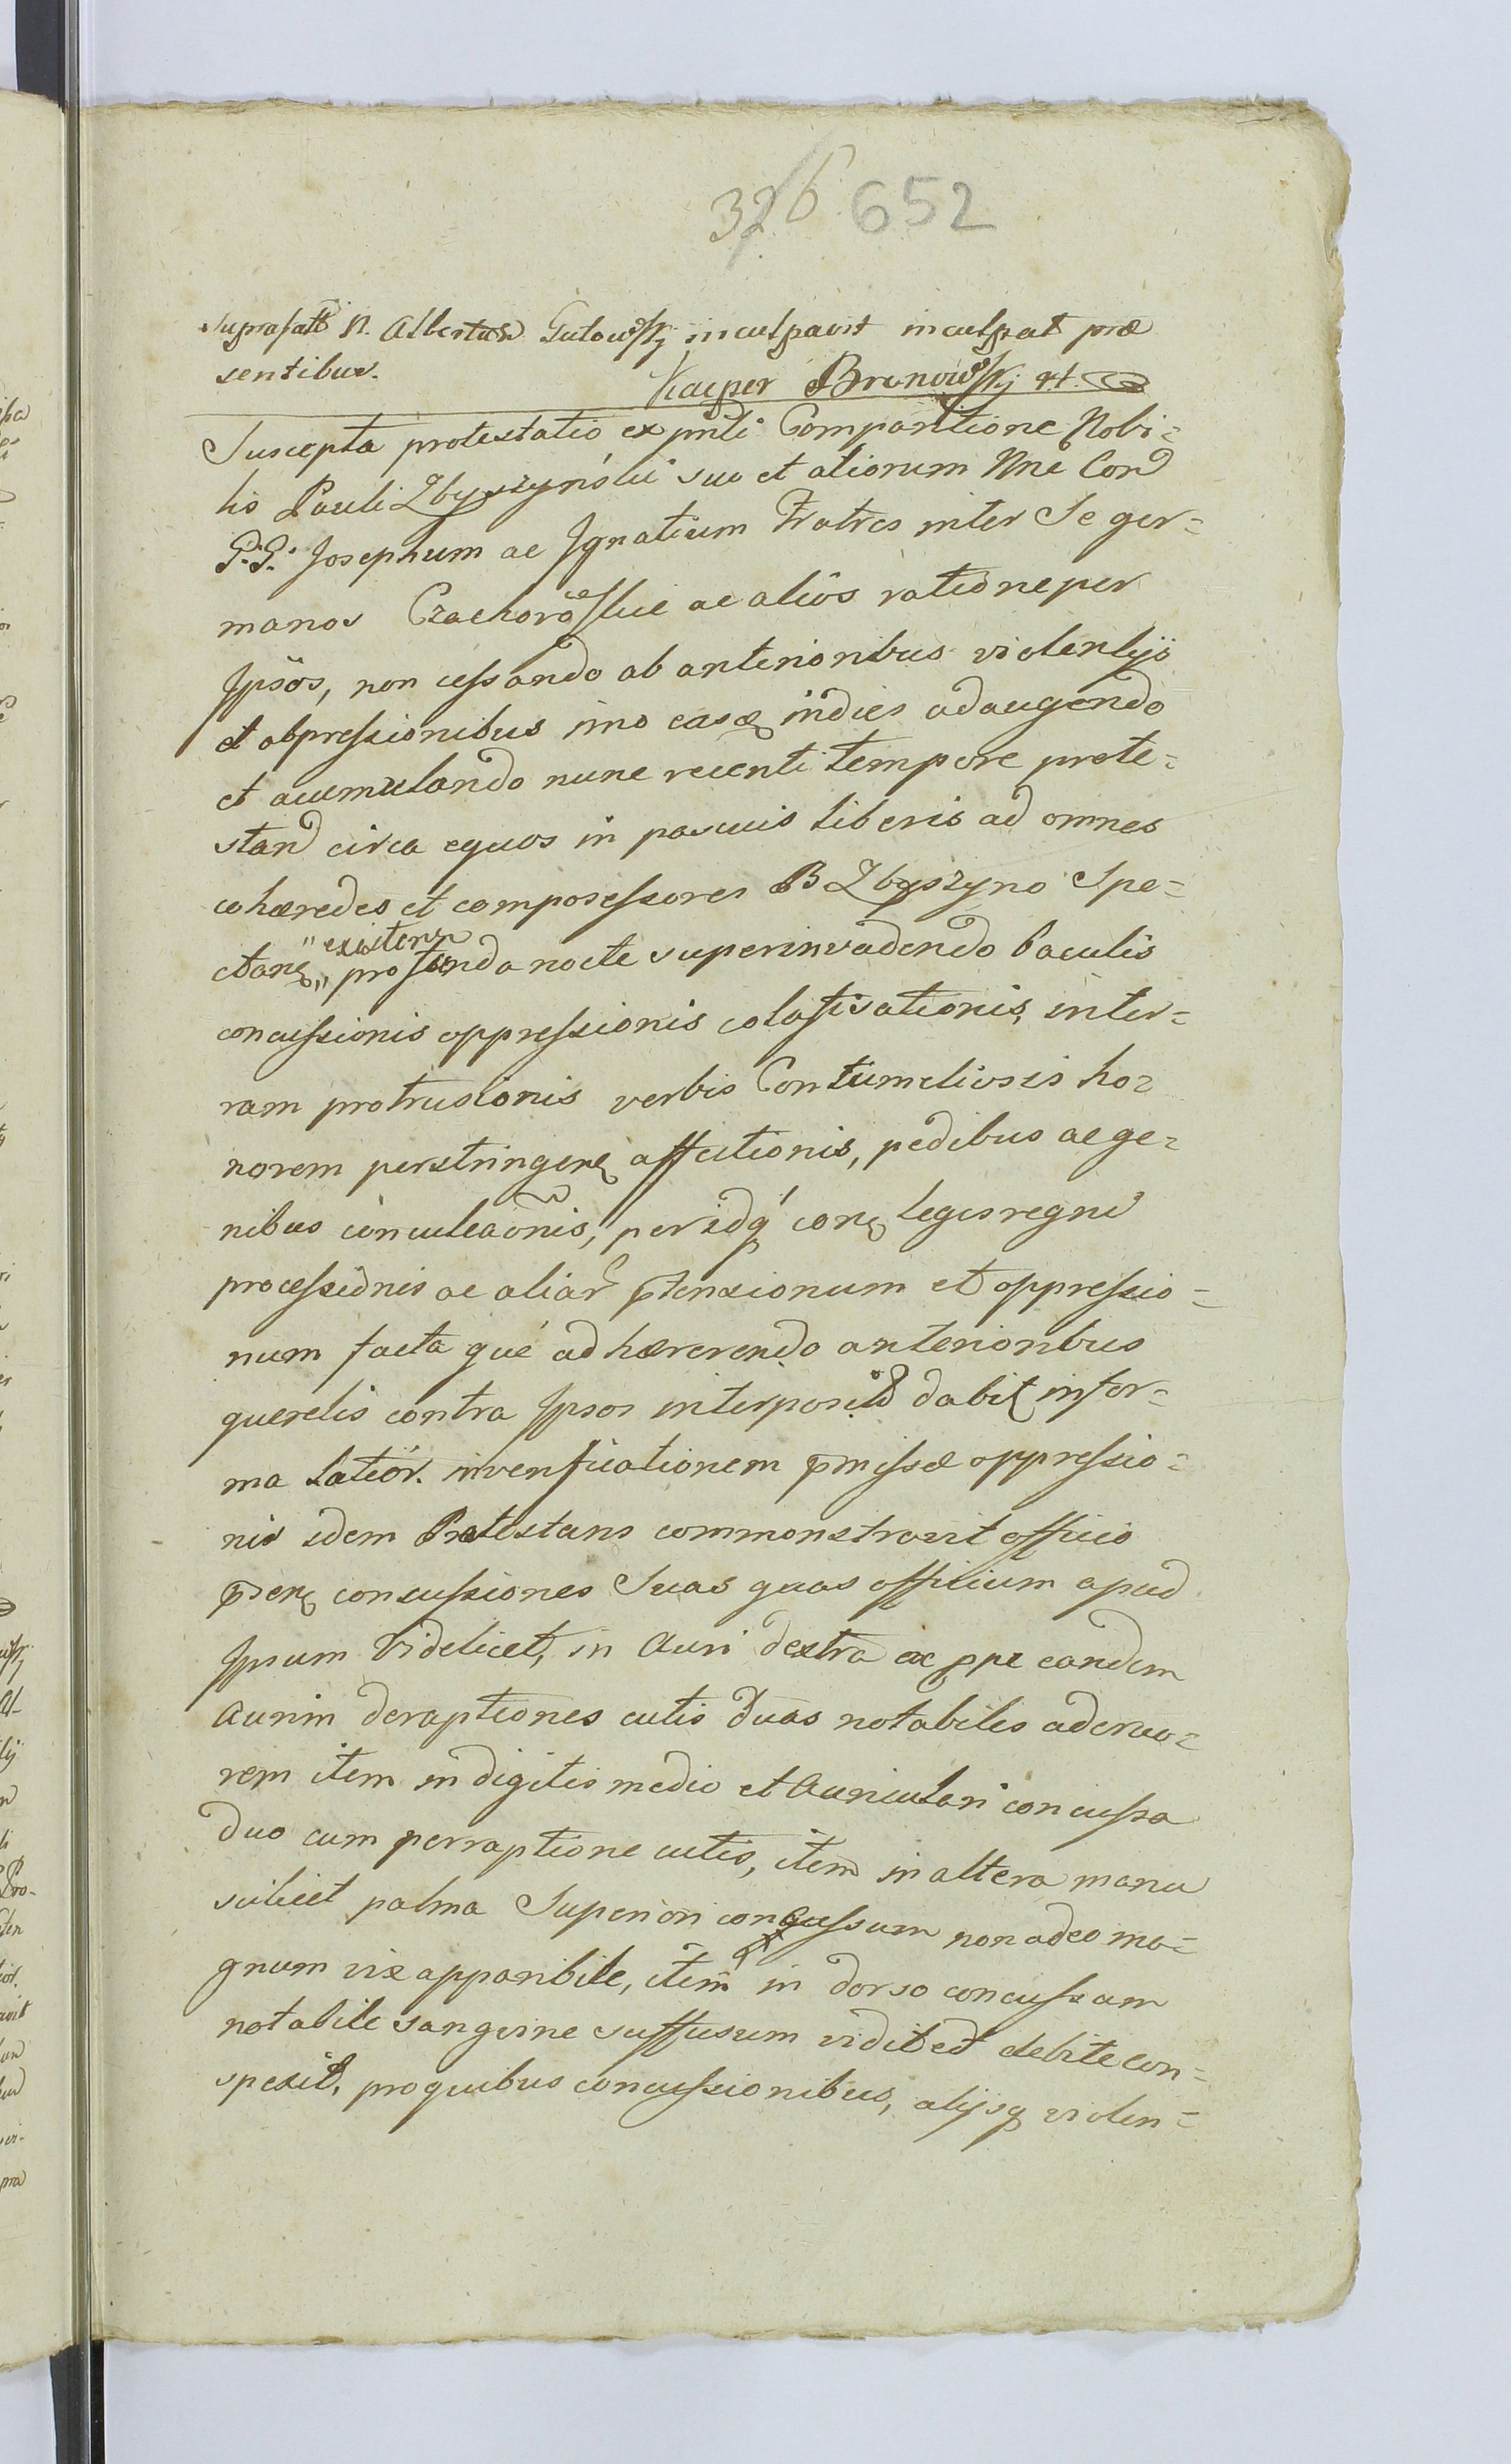 326 652
suprafatt N. Albertus Gutowskj inculpavit inculpat præ
sentibus.
Kacper Bronowskj
Suscepta protestatio ex pnti Comparitione Nobi=
lis Pauli Zbyszynskii suo et aliorum Nne Con
G.G. Josephum ac Ignatium Fratres inter Se ger=
manos Czachorowskie ac alios ratione per
Ipsos, non cessando ab anterioribus violentijs
et obpressionibus imo easq indies adaugendo
et acumulando nunc recenti tempore prote=
stand circa equos in pascuis liberis ad omnes
cohæredes et compossessores B Zbyszyno Spe=
ctanę "existen" profunda nocte superinvadendo baculis
concussionis oppressionis colafisationis, inter=
ram protrusionis verbis Contumeliosis ho=
norem perstringenę affectionis, pedibus ac ge=
nibus conculcaonis, peridq conę leges regni
processionis ac aliar ptensionum et oppressio=
num facta que adhærerendo anterioribus
querelis contra Ipsos interposit dabit infor=
ma latior. inverificationem pmissæ oppressio=
nis idem Protestans commonstravit officio
pserę concussiones Suas quas officium apud
Ipsum Videlicet, in Auri dextra ac ppe eandem
Aurim deraptiones cutis duas notabiles adcruo=
rem item in digitis medio et Auriculari concussa
duo cum perraptione cutis, item in altera manu
scilicet palma Superiori concussum non adeo ma=
gnum vix apparibile, item in dorso concussum
notabile sanguine suffusum vidit et debite con=
spexit, pro quibus concussionibus, alijsq violen=